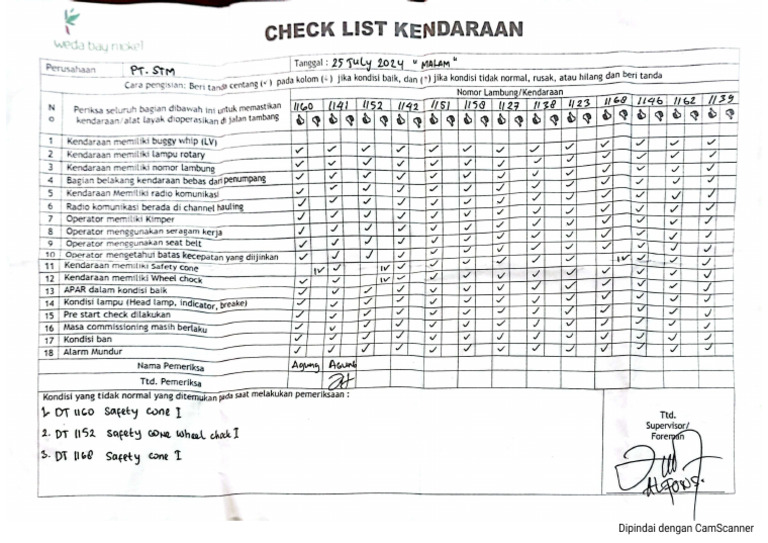 weda bay nickel
CHECK LIST KENDARAAN
Perusahaan PT. STM Tanggal : 25 July 2024 "MALAM"
Cara pengisian: Beri tanda centang (✓) pada kolom (+) jika kondisi baik, dan (*) jika kondisi tidak normal, rusak, atau hilang dan beri tanda
Nomor Lambung/Kendaraan
No Periksa seluruh bagian dibawah ini untuk memastikan kendaraan/alat layak dioperasikan di jalan tambang 1160 1141 1152 1142 1151 1158 1127 1138 1123 1168 1146 1162 1139
1 Kendaraan memiliki buggy whip (LV)
2 Kendaraan memiliki lampu rotary
3 Kendaraan memiliki nomor lambung
4 Bagian belakang kendaraan bebas dari penumpang
5 Kendaraan Memiliki radio komunikasi
6 Radio komunikasi berada di channel hauling
7 Operator memiliki Kimper
8 Operator menggunakan seragam kerja
9 Operator menggunakan seat belt
10 Operator mengetahui batas kecepatan yang diijinkan
11 Kendaraan memiliki Safety cone
12 Kendaraan memiliki Wheel chock
13 APAR dalam kondisi baik
14 Kondisi lampu (Head lamp, indicator, breake)
15 Pre start check dilakukan
16 Masa commissioning masih berlaku
17 Kondisi ban
18 Alarm Mundur
Nama Pemeriksa Agung Agung
Ttd. Pemeriksa
Kondisi yang tidak normal yang ditemukan pada saat melakukan pemeriksaan :
1. DT 1160 Safety Cone I
2. DT 1152 Safety cone wheel chock I
3. DT 1168 Safety Cone I
Ttd.
Supervisor/
Foreman
Dipindai dengan CamScanner